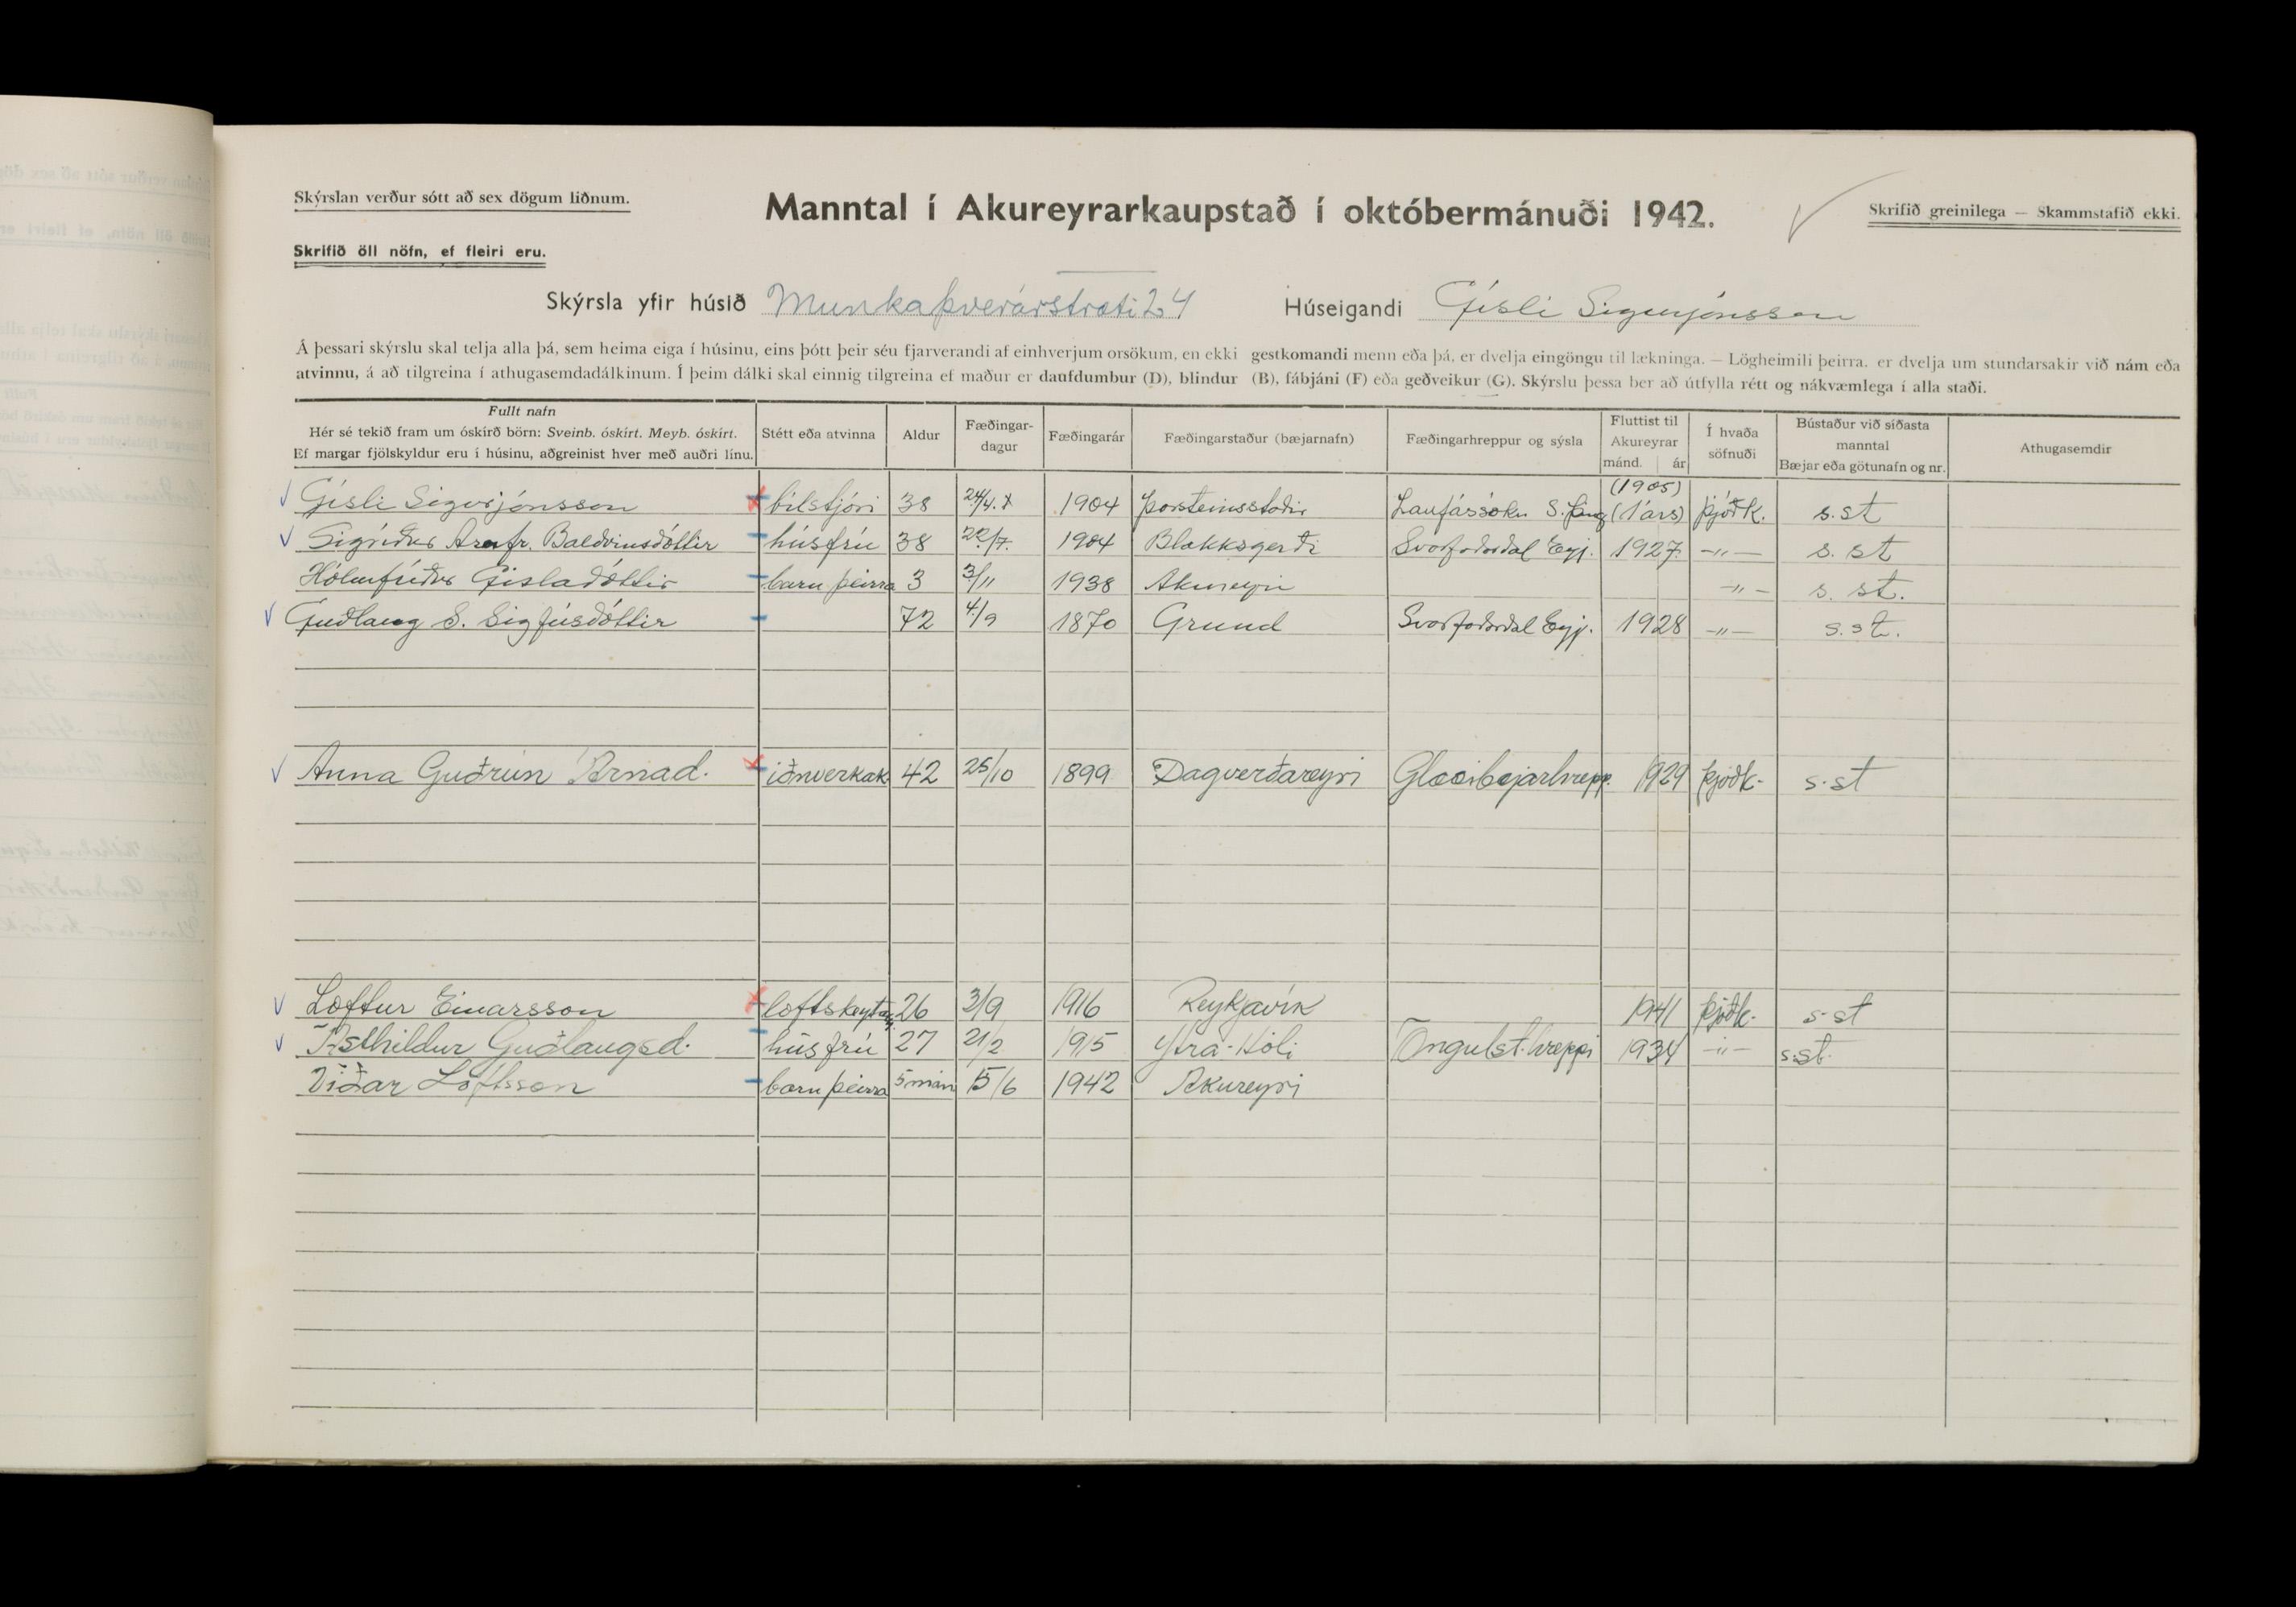 Skýrslan verður sótt að sex dögum liðnum.
Manntal í Akureyrarkaupstað í októbermánuði 1942.
Skrifið greinilega — Skammstafið ekki.
Skrifið öll nöfn, ef fleiri eru.
Skýrsla yfir húsið Munkaþverárstræti 24 Húseigandi Gísli Sigurjónsson
Á þessari skýrslu skal telja alla þá, sem heima eiga í húsinu, eins þótt þeir séu fjarverandi af einhverjum orsökum, en ekki gestkomandi menn eða þá, er dvelja eingöngu til lækninga. — Lögheimili þeirra. er dvelja um stundarsakir við nám eða
atvinnu, á að tilgreina í athugasemdadálkinum. Í þeim dálki skal einnig tilgreina ef maður er daufdumbur (D), blindur (B), fábjáni (F) eða geðveikur (G). Skýrslu þessa ber að útfylla rétt og nákvæmlega í alla staði.
Fullt nafn
Hér sé tekið fram um óskírð börn: Sveinb. óskírt. Meyb. óskírt.
Ef margar fjölskyldur eru í húsinu, aðgreinist hver með auðri línu.
Stétt eða atvinna
Aldur
Fæðingar-
dagur
Fæðingarár
Fæðingarstaður (bæjarnafn)
Fæðingarhreppur og sýsla
Fluttist til
Akureyrar
mánd. ár
Í hvaða
söfnuði
Bústaður við síðasta
manntal
Bæjar eða götunafn og nr.
Athugasemdir
Gísli Sigurjónsson bílstjóri 38 24/4. 1904 Þorsteinsstaðir Laufássókn S. Þing (1905) (1 árs) þjóðk. s. st
Sigríður Arnfr. Baldvinsdóttir húsfrú 38 22/7. 1904 Blakksgerði Svarfaðardal Eyj. 1927 -"- s. st
Hólmfríður Gísladóttir barn þeirra 3 3/11 1938 Akureyri -"- s. st.
Guðlaug S. Sigfúsdóttir 72 4/9 1870 Grund Svarfaðardal Eyj. 1928 -"- s. st.
Anna Guðrún Árnad. iðnverkak. 42 25/10 1899 Dagverðareyri Glæsibæjarhrepp. 1929 þjóðk. s. st
Loftur Einarsson loftskeytam. 26 3/9 1916 Reykjavík 1941 þjóðk. s. st
Ásthildur Guðlaugsd. húsfrú 27 21/2 1915 Ytra-Hóli Öngulst.hreppi 1934 -"- s. st.
Viðar Loftsson barn þeirra 5 mán 15/6 1942 Akureyri